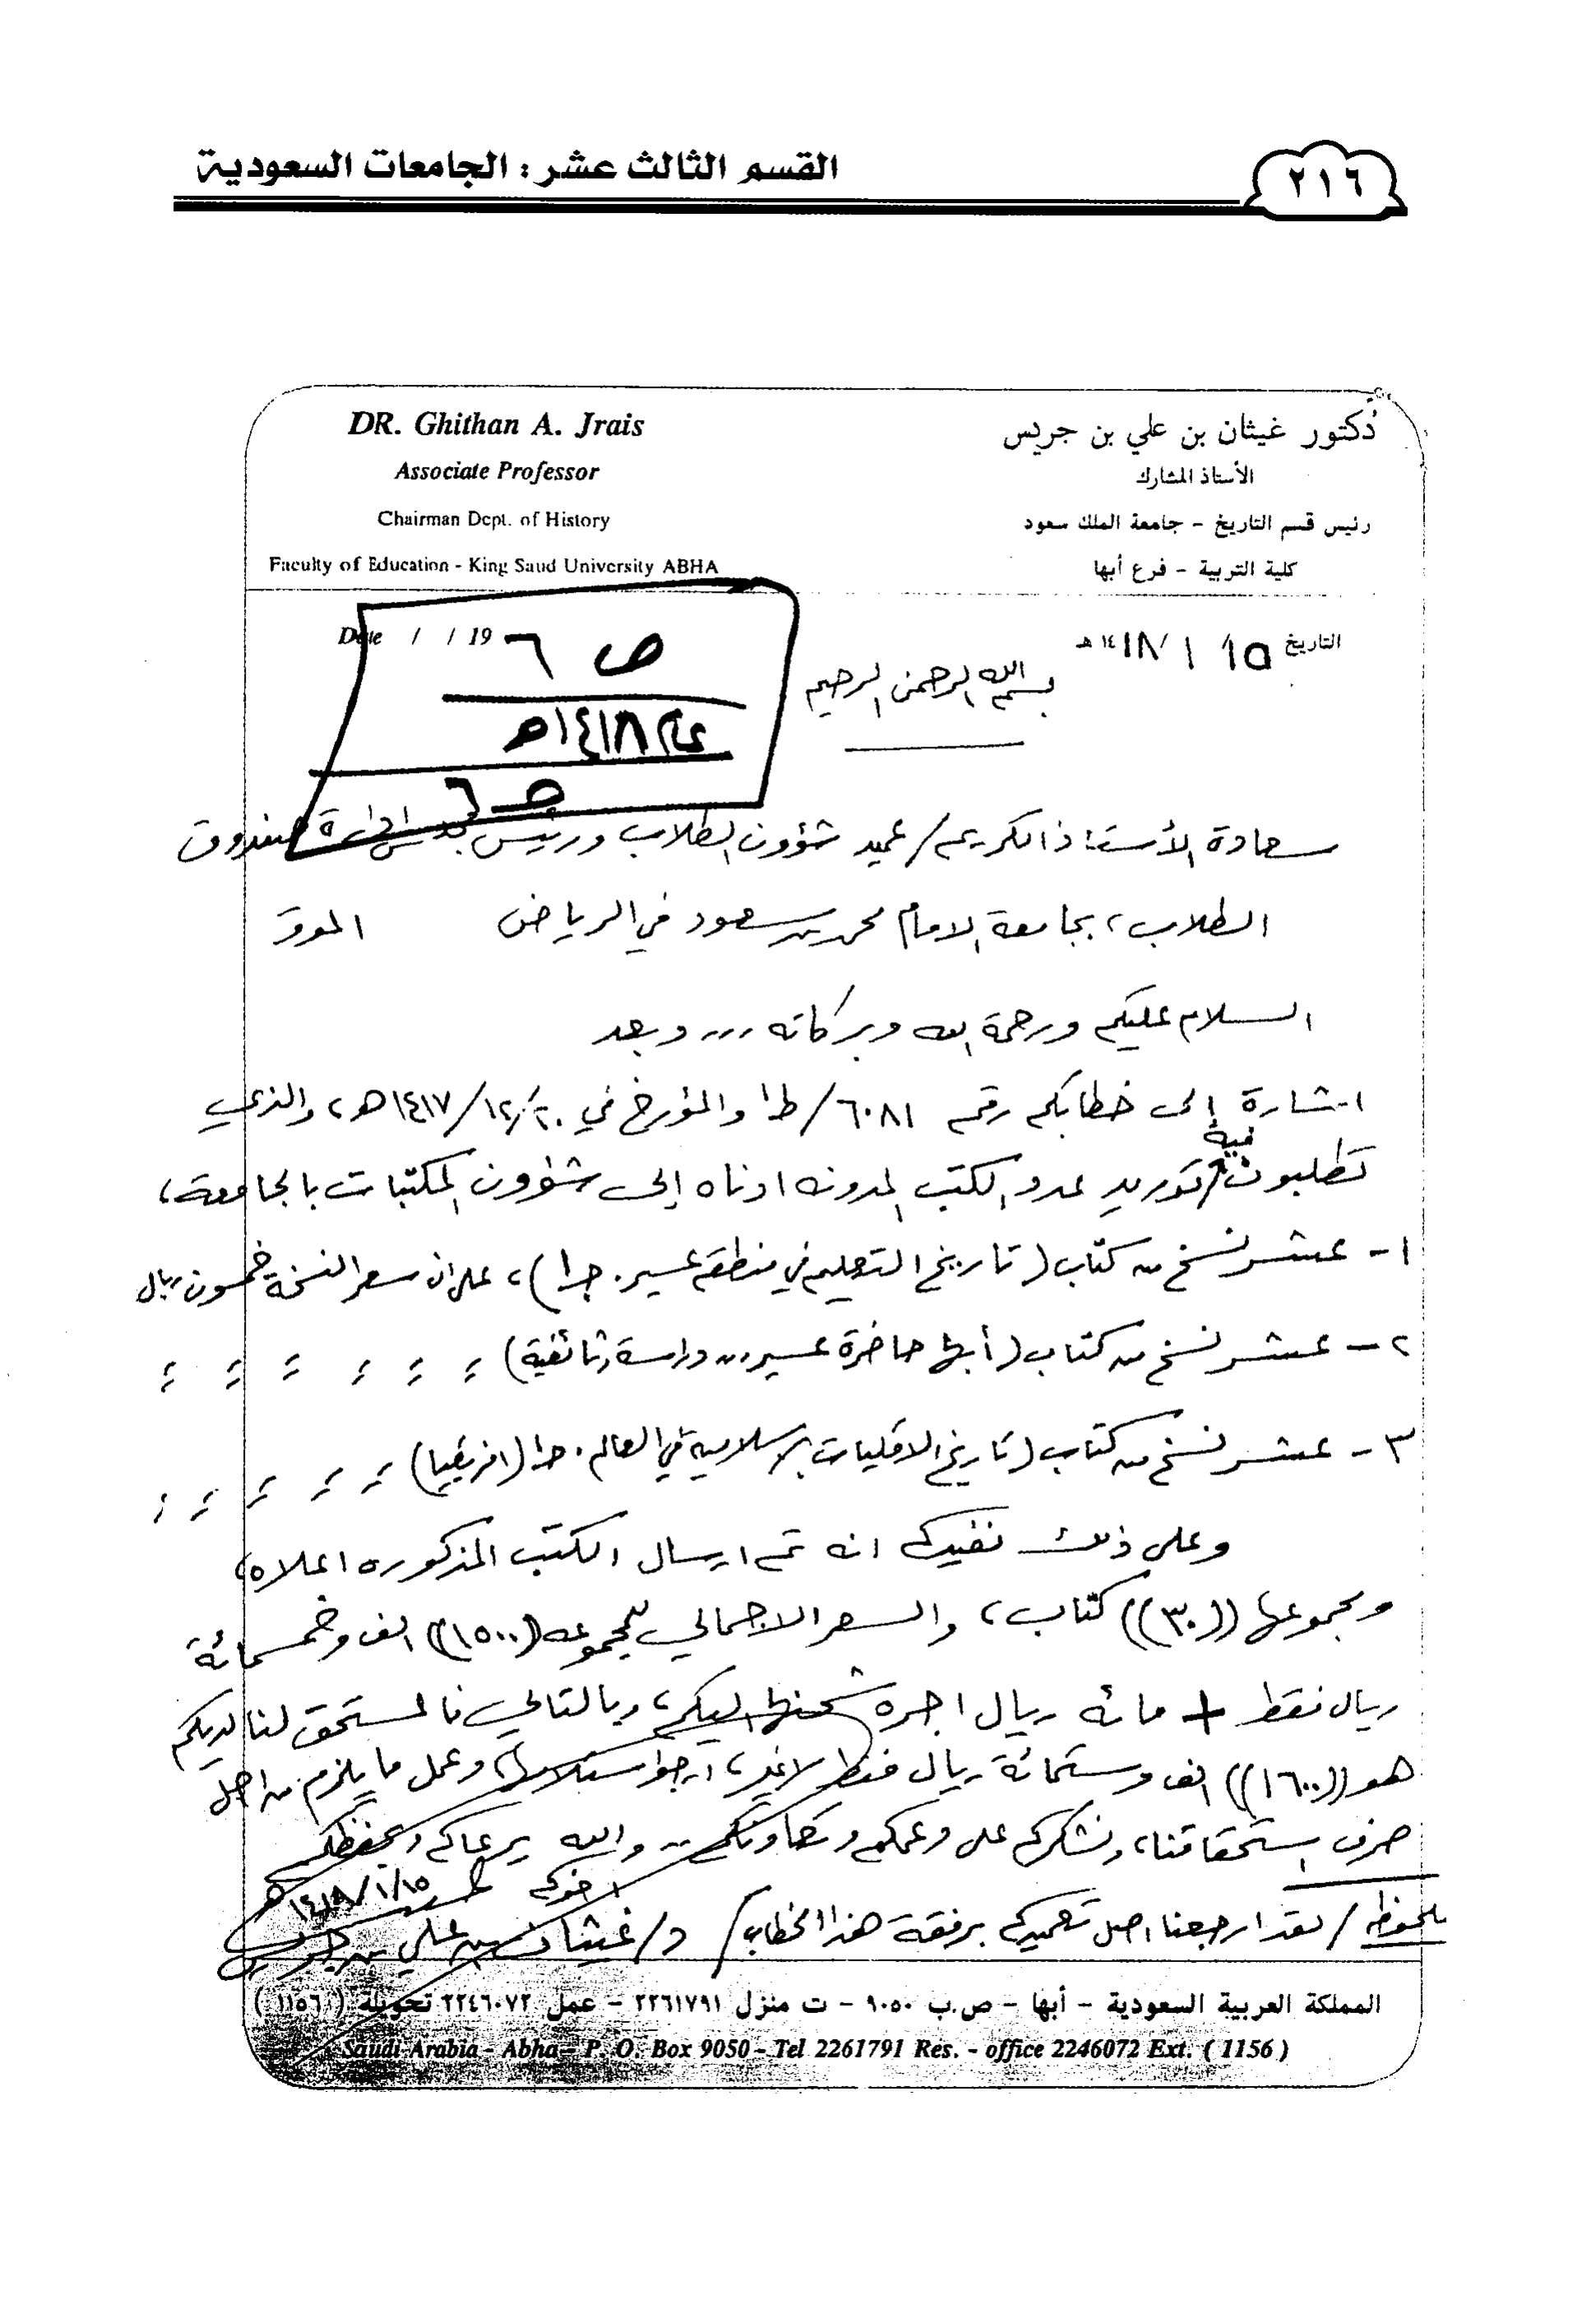 القسم الثالث عشر : الجامعات السعودية
٢١٦
DR. Ghithan A. Jrais
Associate Professor
Chairman Dept. of History
Faculty of Education - King Saud University ABHA
دكتور غيثان بن علي بن جريس
الأستاذ المشارك
رئيس قسم التاريخ - جامعة الملك سعود
كلية التربية - فرع أبها
التاريخ ١٥ / ١ / ١٤١٨ هـ
Date / / 19
ص ٦
١٤١٨هـ
ص ٦
بسم الله الرحمن الرحيم
سعادة الأستاذ الكريم / عميد شؤون الطلاب ورئيس مجلس إدارة صندوق
الطلاب، بجامعة الامام محمد بن سعود في الرياض الموقر
السلام عليكم ورحمة الله وبركاته ... وبعد
اشارة إلى خطابكم رقم ٦٠٨١/ط١ والمؤرخ في ١٤١٧/١٢/٢٠هـ، والذي
تطلبون فيه توريد عدد الكتب المدونه ادناه إلى شؤون المكتبات بالجامعة،
١- عشر نسخ من كتاب (تاريخ التعليم في منطقة عسير. جـ١)، على ان سعر النسخة خمسون ريال
٢- عشر نسخ من كتاب (أبها حاضرة عسير ... دراسة وثائقية) ء ء ء ء ء ء
٣- عشر نسخ من كتاب (تاريخ الاقليات الإسلامية في العالم. جـ١ (افريقيا) ء ء ء ء ء
وعلى ذلك نفيدكم انه تم ارسال الكتب المذكوره اعلاه،
ومجموعها ((٣٠)) كتاب، والسعر الاجمالي للمجموعه ((١٥٠٠)) الف وخمسمائة
ريال فقط + مائه ريال اجره شحنها اليكم، وبالتالي فالمستحق لنا لديكم
هو ((١٦٠٠)) الف وستمائة ريال فقط لاغير، ارجو استلامها، وعمل ما يلزم من اجل
صرف استحقاقنا، ونشكركم على دعمكم وتعاونكم .. والله يرعاكم ويحفظكم
اخوكم
١٤١٨/١/١٥هـ
ملحوظه / لقد ارجعنا اصل تعميدكم برفقة هذا الخطاب / د/غيثان بن علي بن جريس
المملكة العربية السعودية - أبها - ص.ب ٩٠٥٠ - ت منزل ٢٢٦١٧٩١ - عمل ٢٢٤٦٠٧٢ تحويلة ( ١١٥٦ )
Saudi Arabia - Abha - P. O. Box 9050 - Tel 2261791 Res. - office 2246072 Ext. ( 1156 )